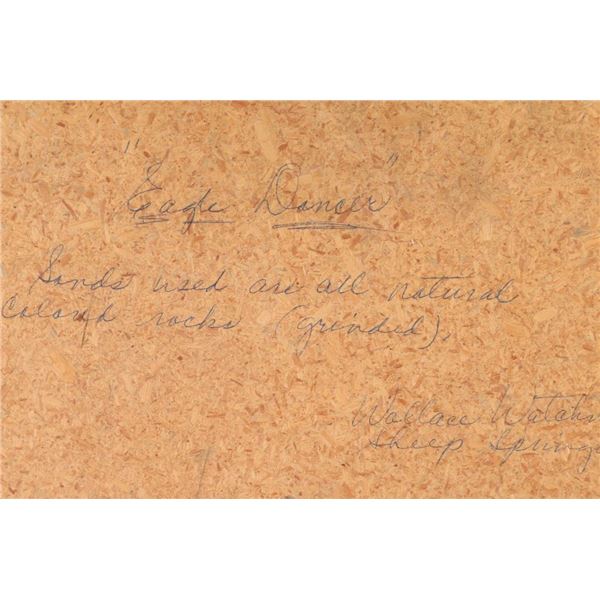 "Eagle Dancer"
Sands used are all natural
colord rocks (grinded).
Wallace Watch
Sheep Springs